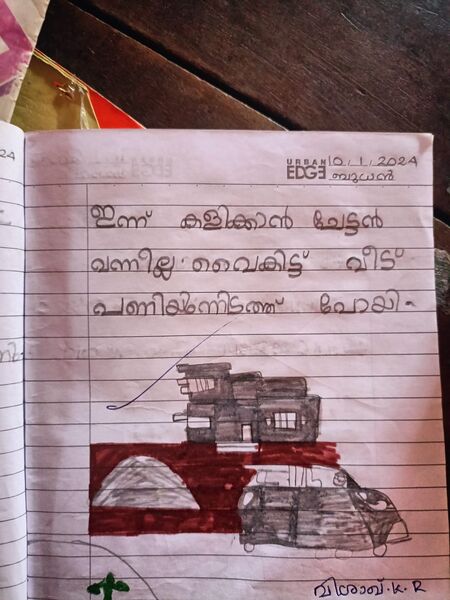 URBAN
EDGE
10, 1, 2024
ബുധൻ
ഇന്ന് കളിക്കാൻ ചേട്ടൻ
വന്നില്ല. വൈകിട്ട് വീട്
പണിയുന്നിടത്ത് പോയി.
K. R